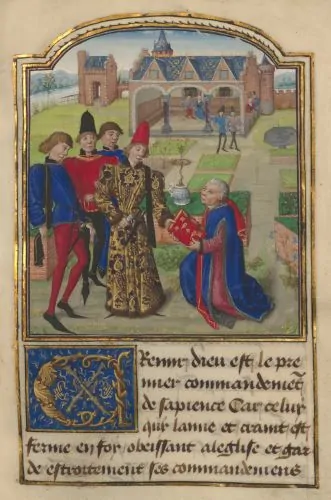 Cremir dieu est le pre
mier commandemēt
de sapience Car celuy
qui laime et craint est
ferme en foy obeissant aleglise et gar
de estroitement ses commandemens